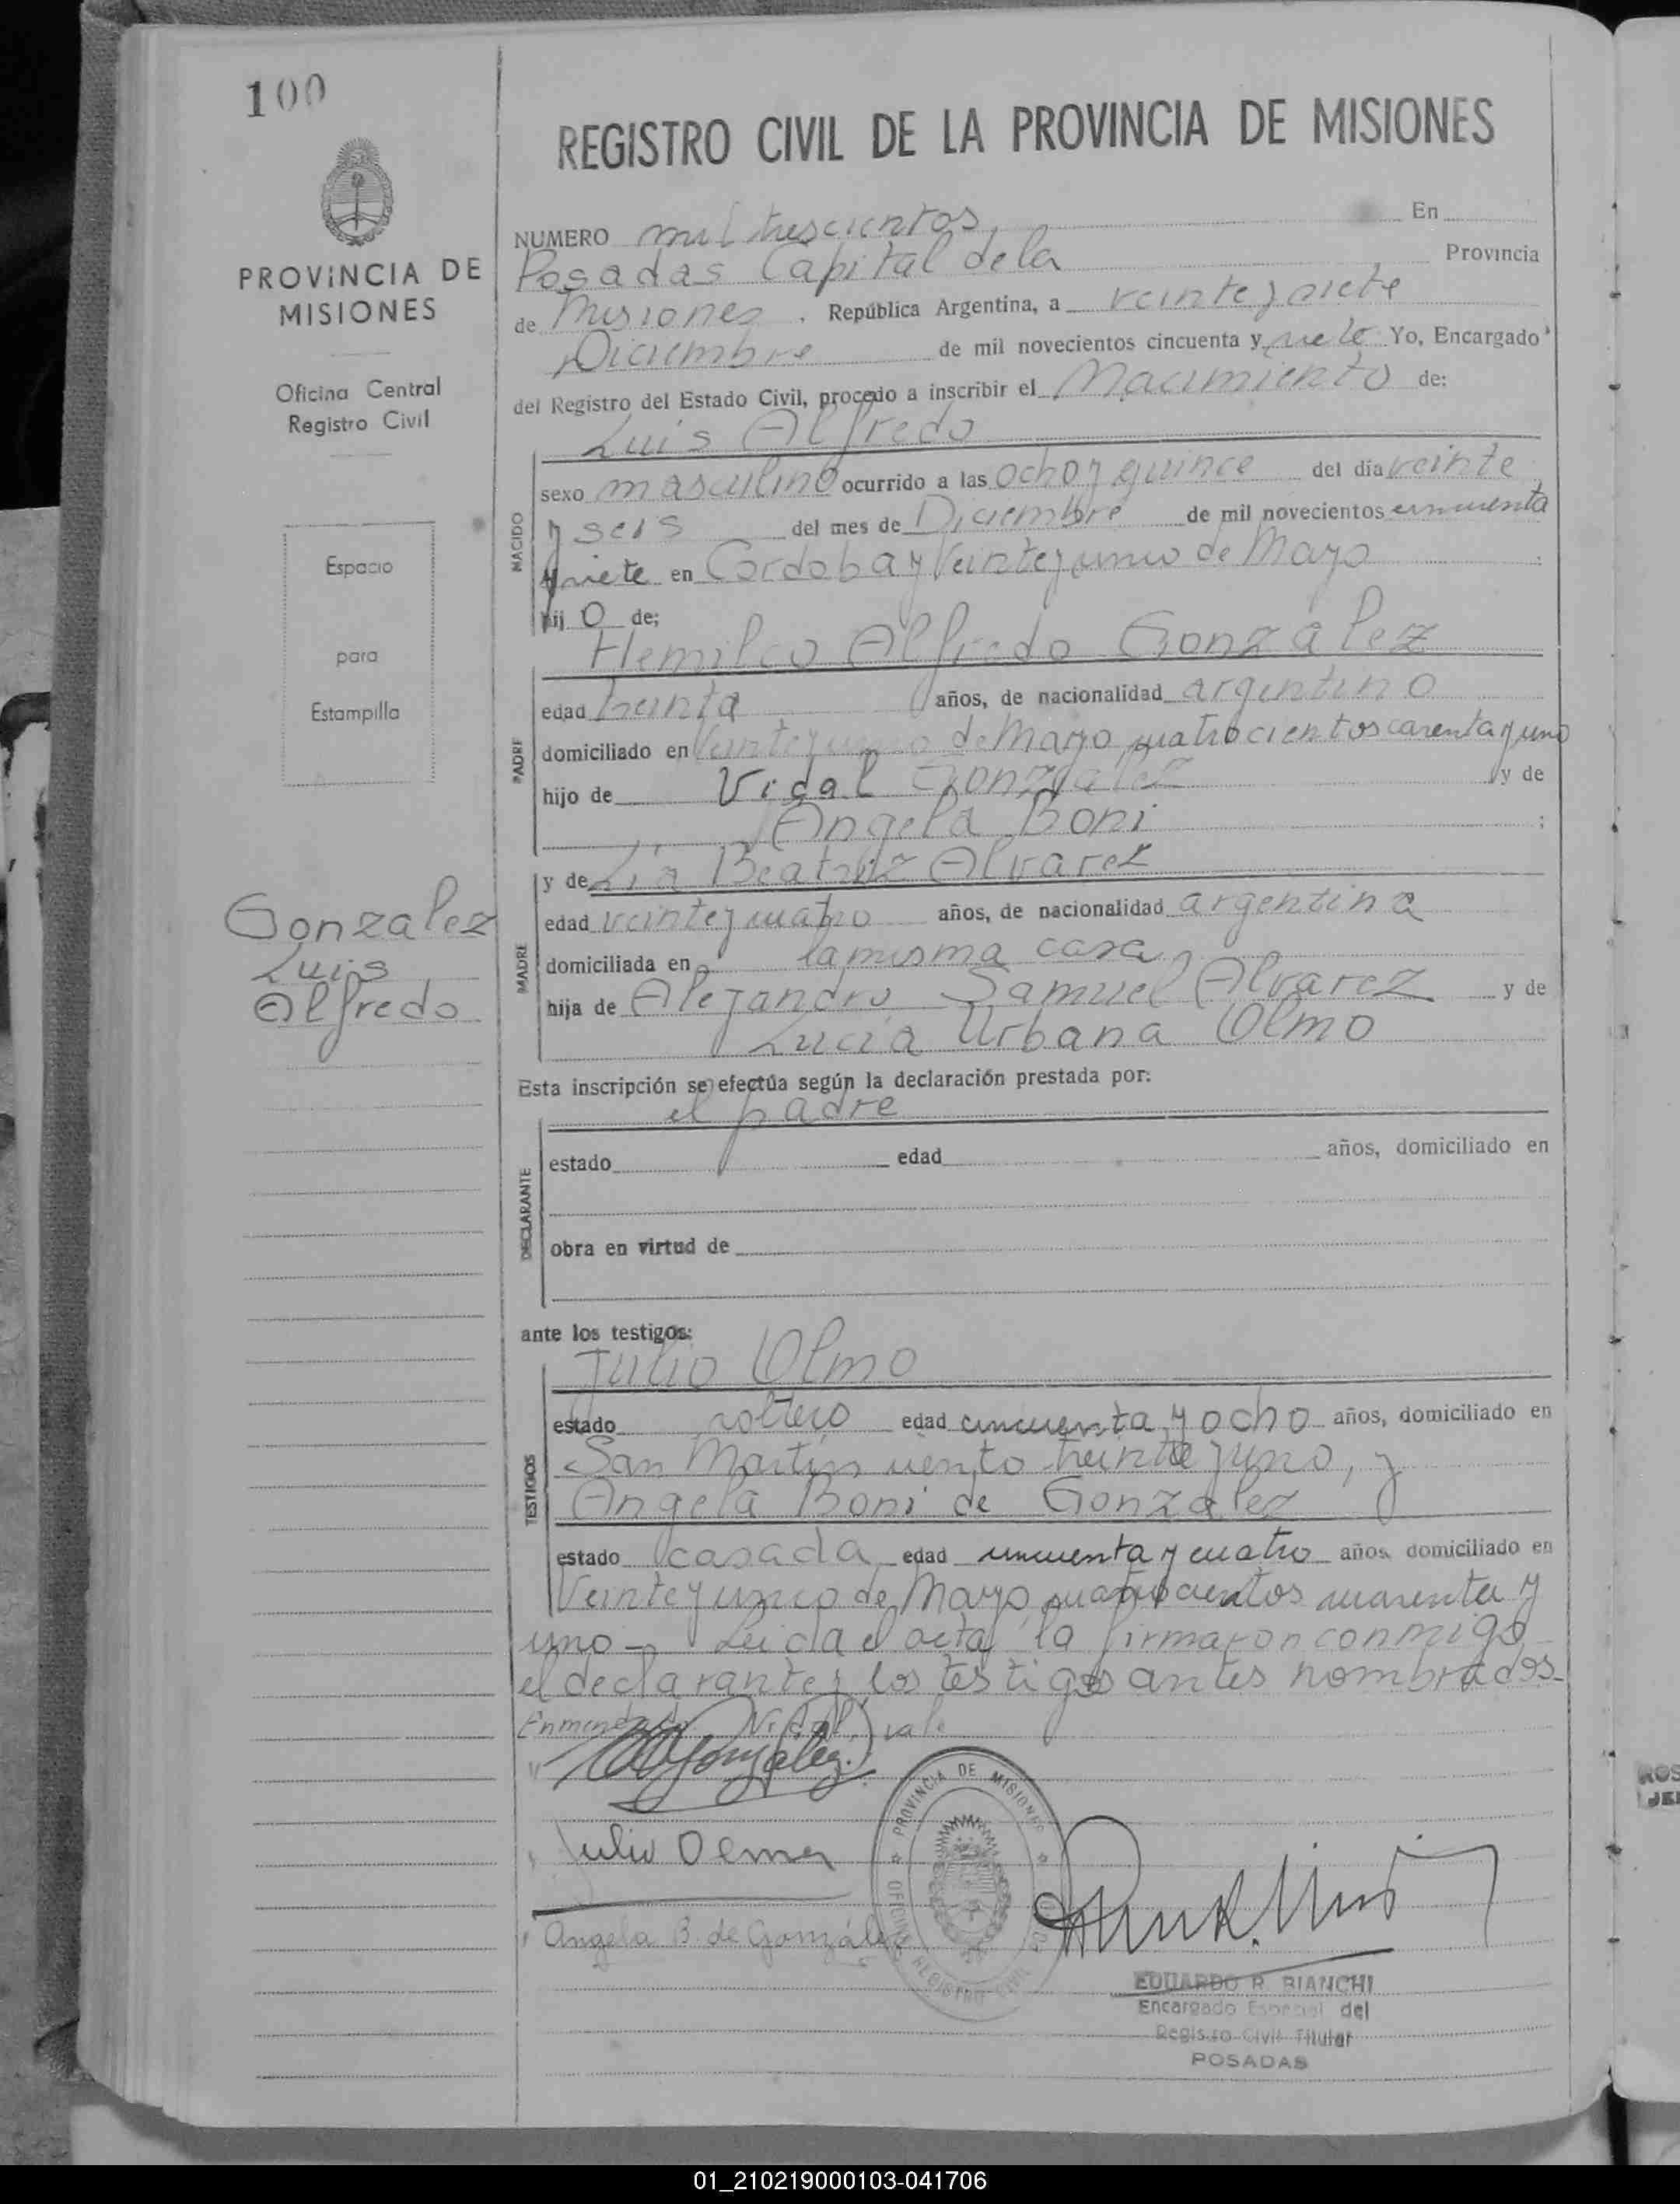 100
PROVINCIA DE
MISIONES
Oficina Central
Registro Civil
Espacio
para
Estampilla
Gonzalez
Luis
Alfredo
REGISTRO CIVIL DE LA PROVINCIA DE MISIONES
NUMERO mil trescientos En
Posadas Capital de la Provincia
de Misiones. República Argentina, a veinte y siete
Diciembre de mil novecientos cincuenta y siete Yo, Encargado
del Registro del Estado Civil, procedo a inscribir el Nacimiento de:
Luis Alfredo
NACIDO
sexo masculino ocurrido a las ocho y quince del día veinte
y seis del mes de Diciembre de mil novecientos cincuenta
y siete en Cordoba y Veinte y unio de Mayo
hij o de;
Alfredo Gonzalez
PADRE
edad treinta años, de nacionalidad argentino
domiciliado en de Mayo cuatrocientos carenta y uno
hijo de Vidal Gonzalez y de
Angela Boni ;
y de Lía Beatriz Alvarez
MADRE
edad veinte y cuatro años, de nacionalidad argentina
domiciliada en la misma casa
hija de Alejandro Samuel Alvarez y de
Lucía Urbana Olmo
Esta inscripción se efectúa según la declaración prestada por:
el padre
DECLARANTE
estado edad años, domiciliado en
obra en virtud de
ante los testigos:
Julio Olmo
TESTIGOS
estado soltero edad cincuenta y ocho años, domiciliado en
San Martin ciento treinta y uno, y
Angela Boni de Gonzalez
estado casada edad cincuenta y cuatro años domiciliado en
Veinte y unico de Mayo cuatrocientos cuarenta y
uno - Leida el acta la firmaron conmigo
el declarante y los testigos antes nombrados.-
Vidal, vale
Gonzalez
Julio Olmo
Angela B de González
PROVINCIA DE MISIONES
EDUARDO R. BIANCHI
Encargado Especial del
Registro Civil Titular
POSADAS
01_210219000103-041706